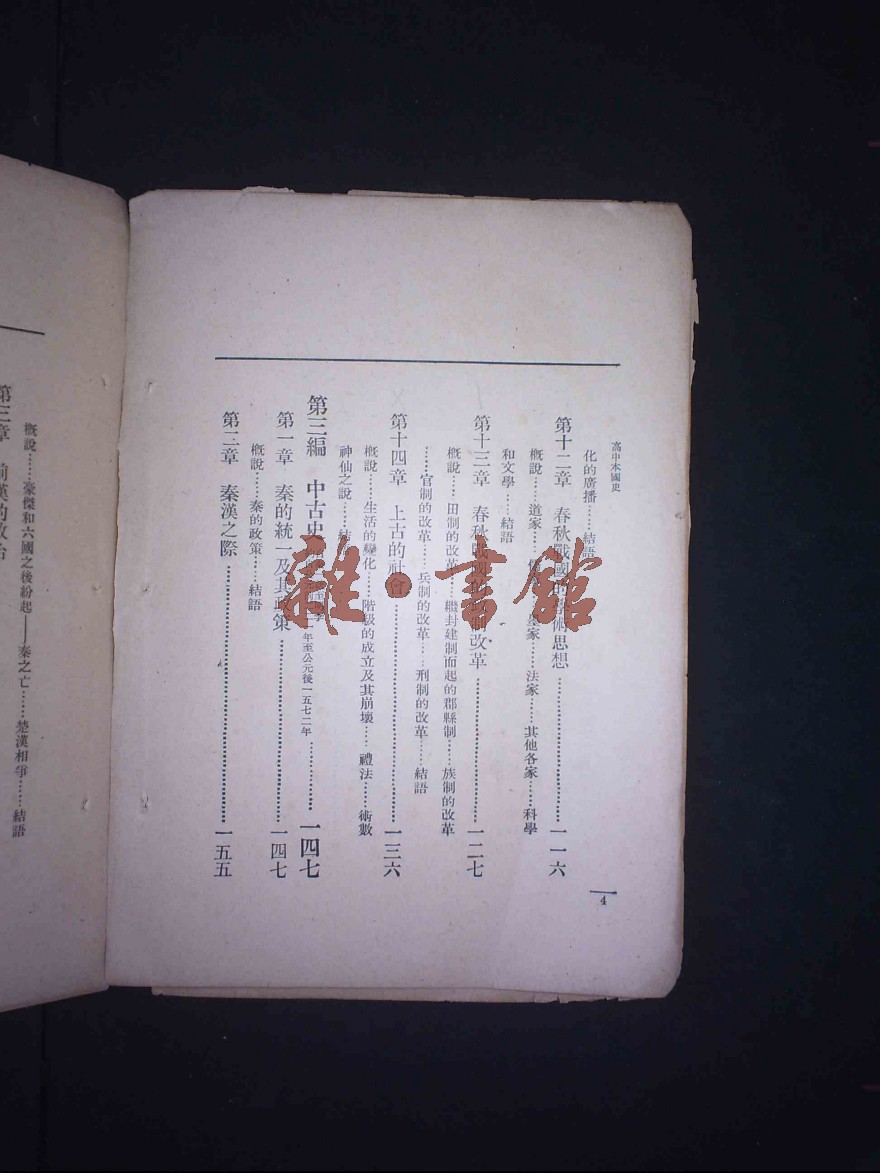 高中本國史
化的廣播……結語
第十二章 春秋戰國的學術思想……一一六
概說……道家……儒家……墨家……法家……其他各家……科學
和文學……結語
第十三章 春秋戰國的政制改革……一二七
概說……田制的改革……繼封建制而起的郡縣制……族制的改革
……官制的改革……兵制的改革……刑制的改革……結語
第十四章 上古的社會……一三六
概說……生活的變化……階級的成立及其崩壞……禮法……術數
神仙之說……結語
第三編 中古史 年至公元後一五七二年……一四七
第一章 秦的統一及其政策……一四七
概說……秦的政策……結語
第二章 秦漢之際……一五五
概說……豪傑和六國之後紛起——秦之亡……楚漢相爭……結語
第三章 前漢的政治
4
雜·書館